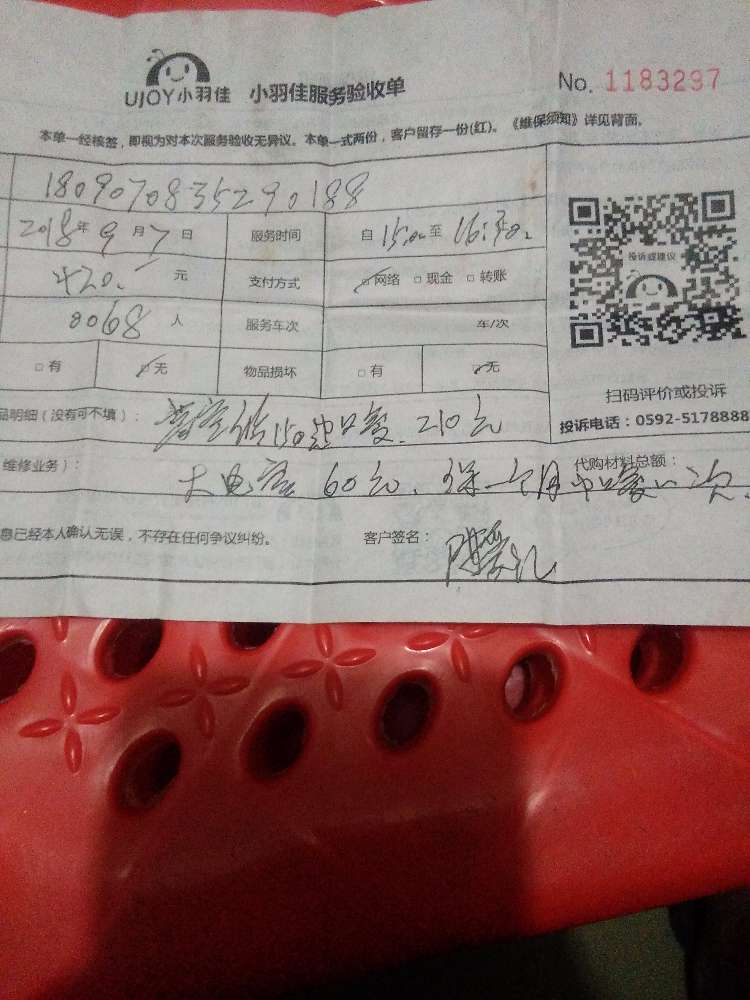 UJOY小羽佳 小羽佳服务验收单 No. 1183297
本单一经核签，即视为对本次服务验收无异议。本单一式两份，客户留存一份(红)。《维保须知》详见背面。
1809070835290188
2018年9月7日 服务时间 自15:00至16:30
420.- 元 支付方式 网络 现金 转账
投诉或建议
0068人 服务车次 车/次
有 无 物品损坏 有 无
扫码评价或投诉
品明细（没有可不填）： 210元
投诉电话：0592-5178888
维修业务）： 代购材料总额：
大电容60元.保一个月
息已经本人确认无误，不存在任何争议纠纷。 客户签名：